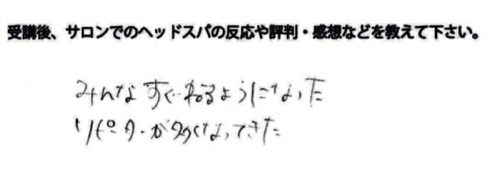 受講後、サロンでのヘッドスパの反応や評判・感想などを教えて下さい。
みんなすぐねるようになった
リピターが多くなってきた